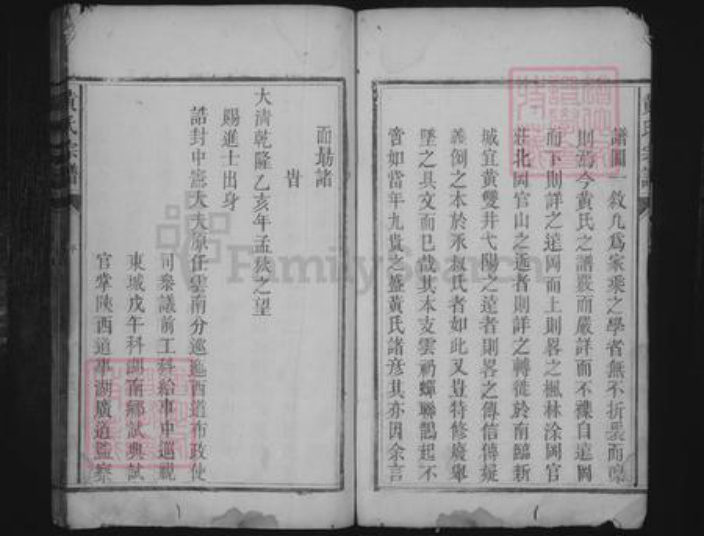 譜圖一敘九為家乘之學者無不折衷而
則為今黃氏之譜嚴而嚴詳而不襍自遠岡
而下則詳之遠岡而上則畧之楓林涂岡官
莊北岡官山之近者則詳之轉徙於南臨新
城宜黃雙井弋陽之遠者則畧之傳信傳疑
義倒之本於承叔氏者如此又豈特修廢舉
墜之具文而已哉其本支雲礽蟬聯鵲起不
啻如當年九貴之盛黃氏諸彥其亦因余言
面勗諸
旹
大清乾隆乙亥年孟秋之望
賜進士出身
誥封中憲大夫原任雲南分巡迤西道布政使
司叅議前工科給事中巡視
東城戊午科湖南鄉試典試
官掌陝西道事湖廣道監察
黃氏宗譜
序
FamilySearch